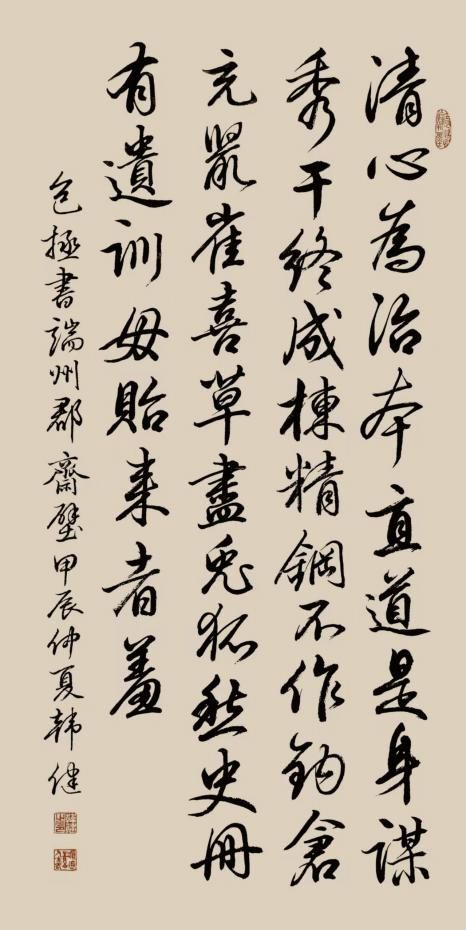 清心為治本直道是身謀
秀干終成棟精鋼不作鈎倉
充鼠雀喜草盡兔狐愁史冊
有遺訓毋貽来者羞
包拯書端州郡齋壁甲辰仲夏韓健